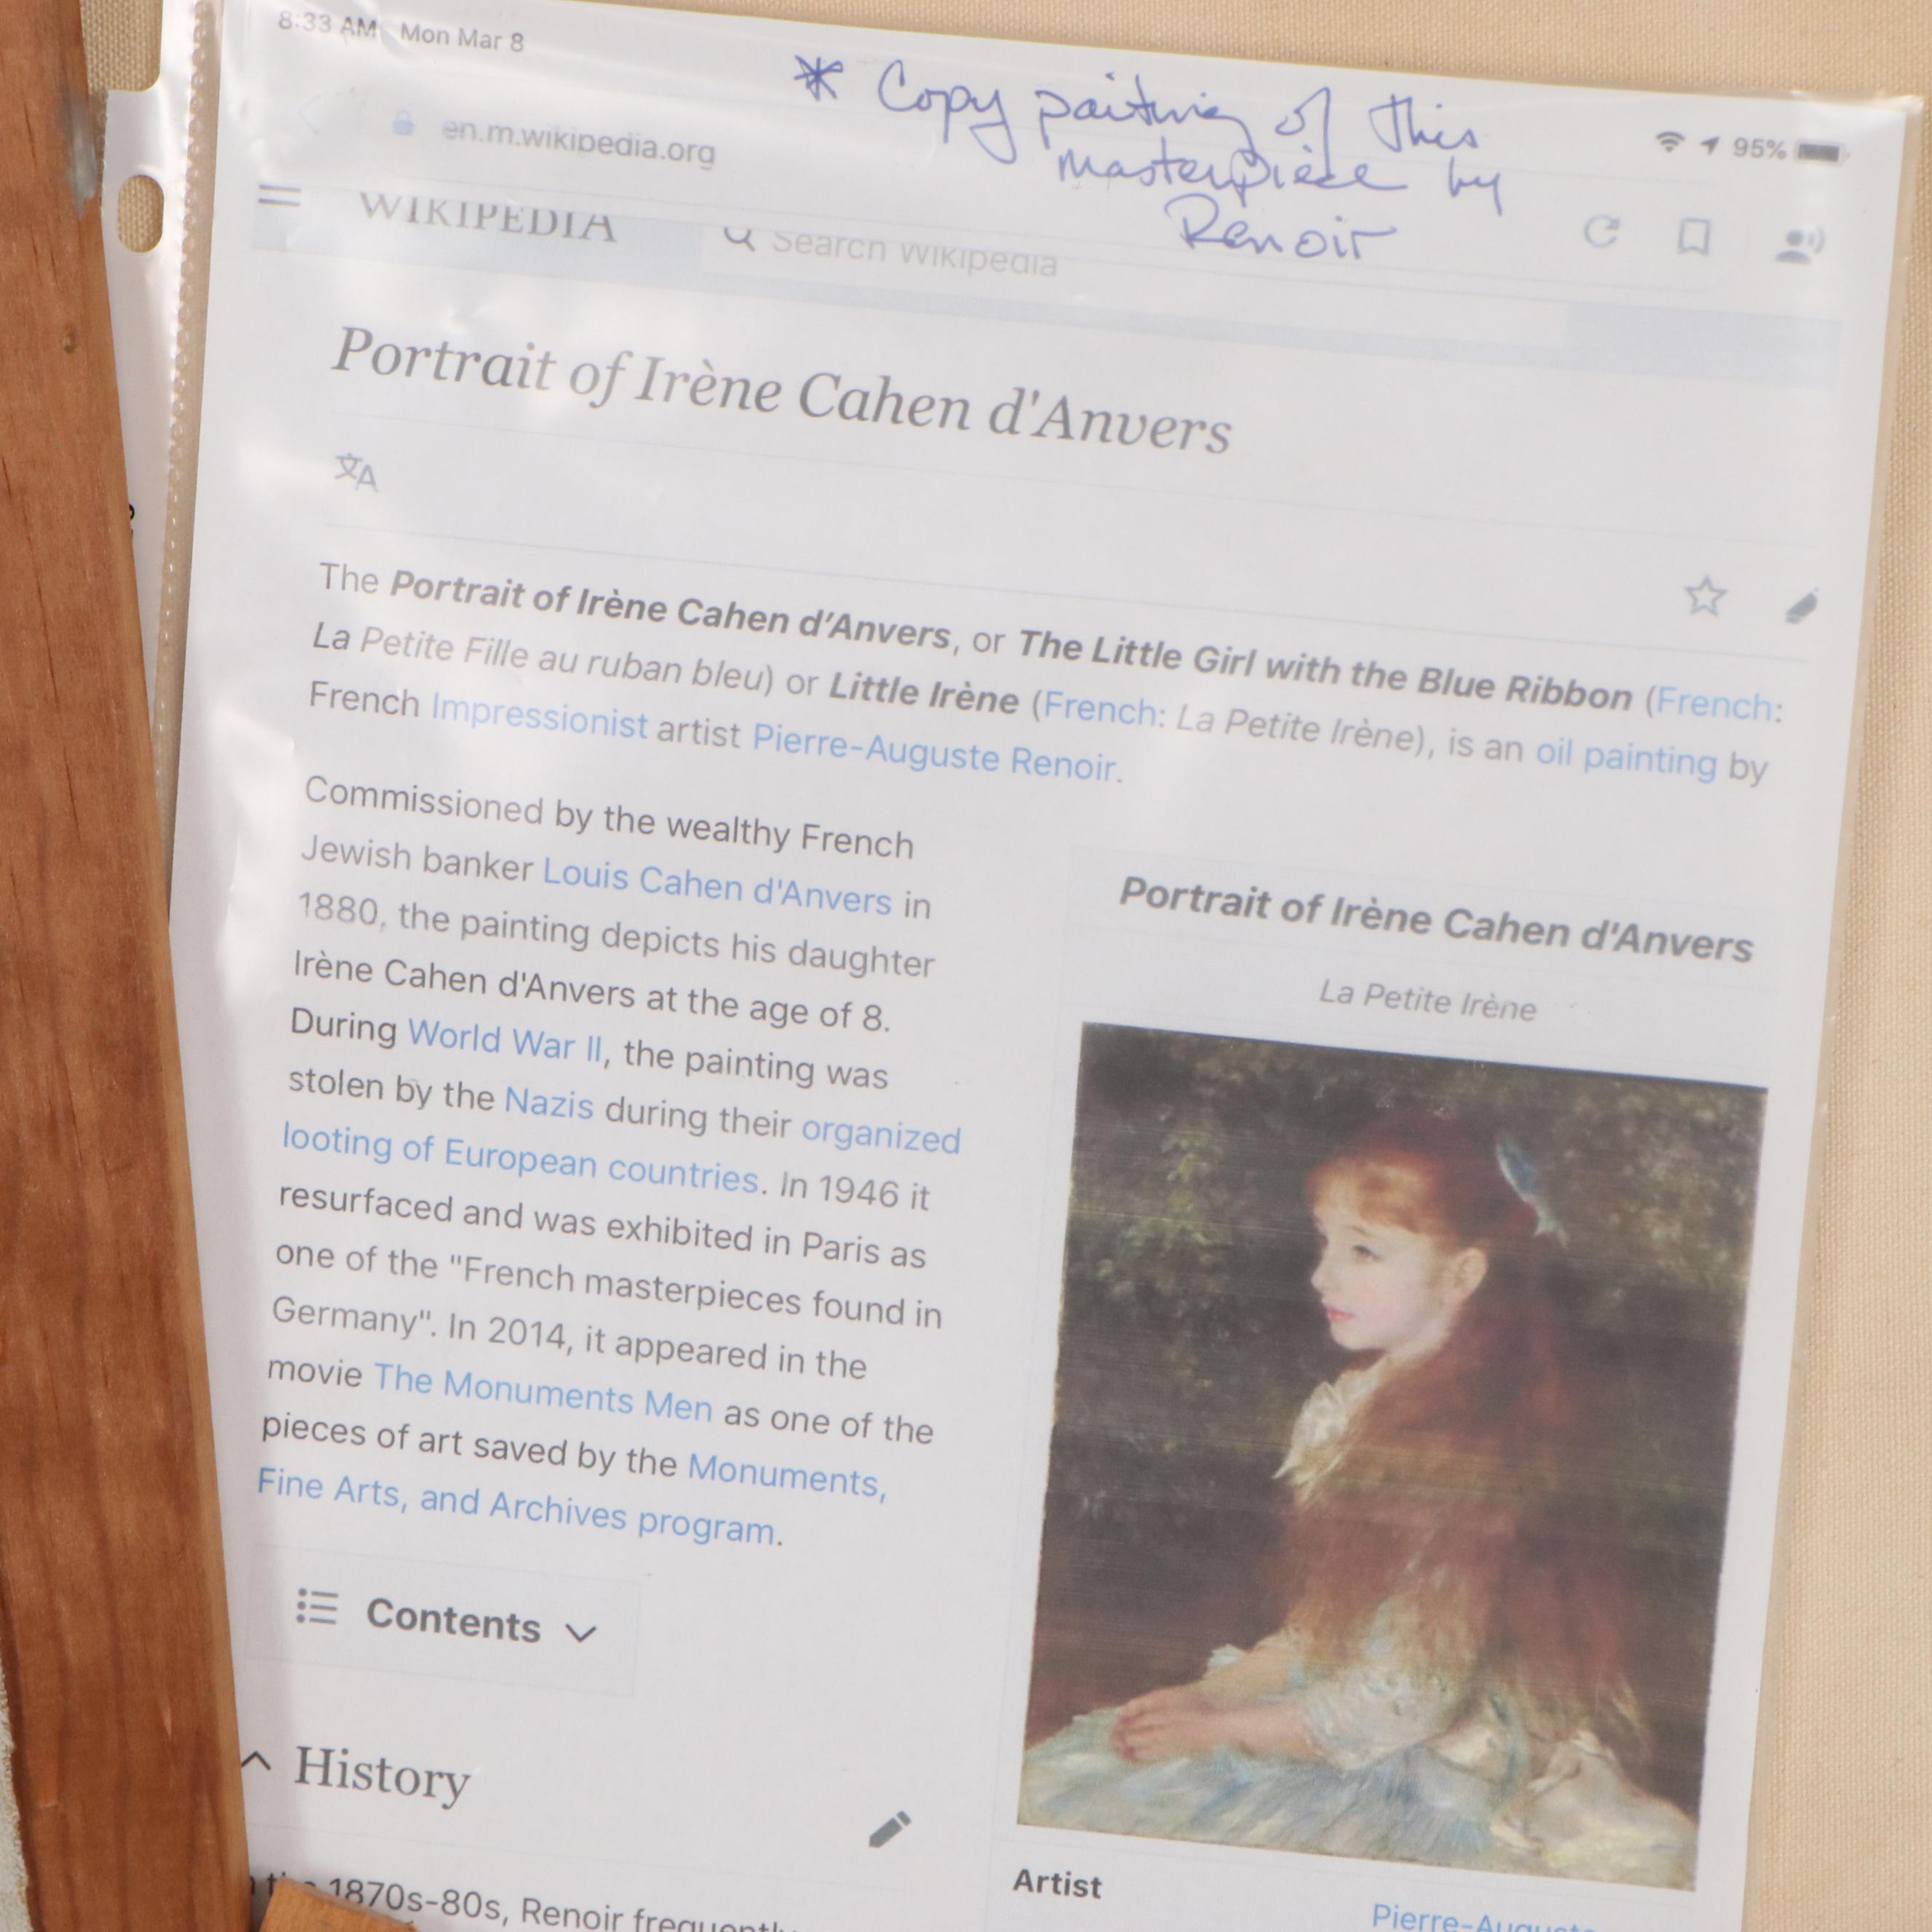 8:33 AM Mon Mar 8
* Copy paiting of this
masterpièce by
Renoir
95%
en.m.wikipedia.org
WIKIPEDIA
Search Wikipedia
Portrait of Irène Cahen d'Anvers
文A
The Portrait of Irène Cahen d'Anvers, or The Little Girl with the Blue Ribbon (French:
La Petite Fille au ruban bleu) or Little Irène (French: La Petite Irène), is an oil painting by
French Impressionist artist Pierre-Auguste Renoir.
Commissioned by the wealthy French
Jewish banker Louis Cahen d'Anvers in
1880, the painting depicts his daughter
Irène Cahen d'Anvers at the age of 8.
During World War II, the painting was
stolen by the Nazis during their organized
looting of European countries. In 1946 it
resurfaced and was exhibited in Paris as
one of the "French masterpieces found in
Germany". In 2014, it appeared in the
movie The Monuments Men as one of the
pieces of art saved by the Monuments,
Fine Arts, and Archives program.
Portrait of Irène Cahen d'Anvers
La Petite Irène
Contents
History
1870s-80s, Renoir frequently
Artist
Pierre-Auguste